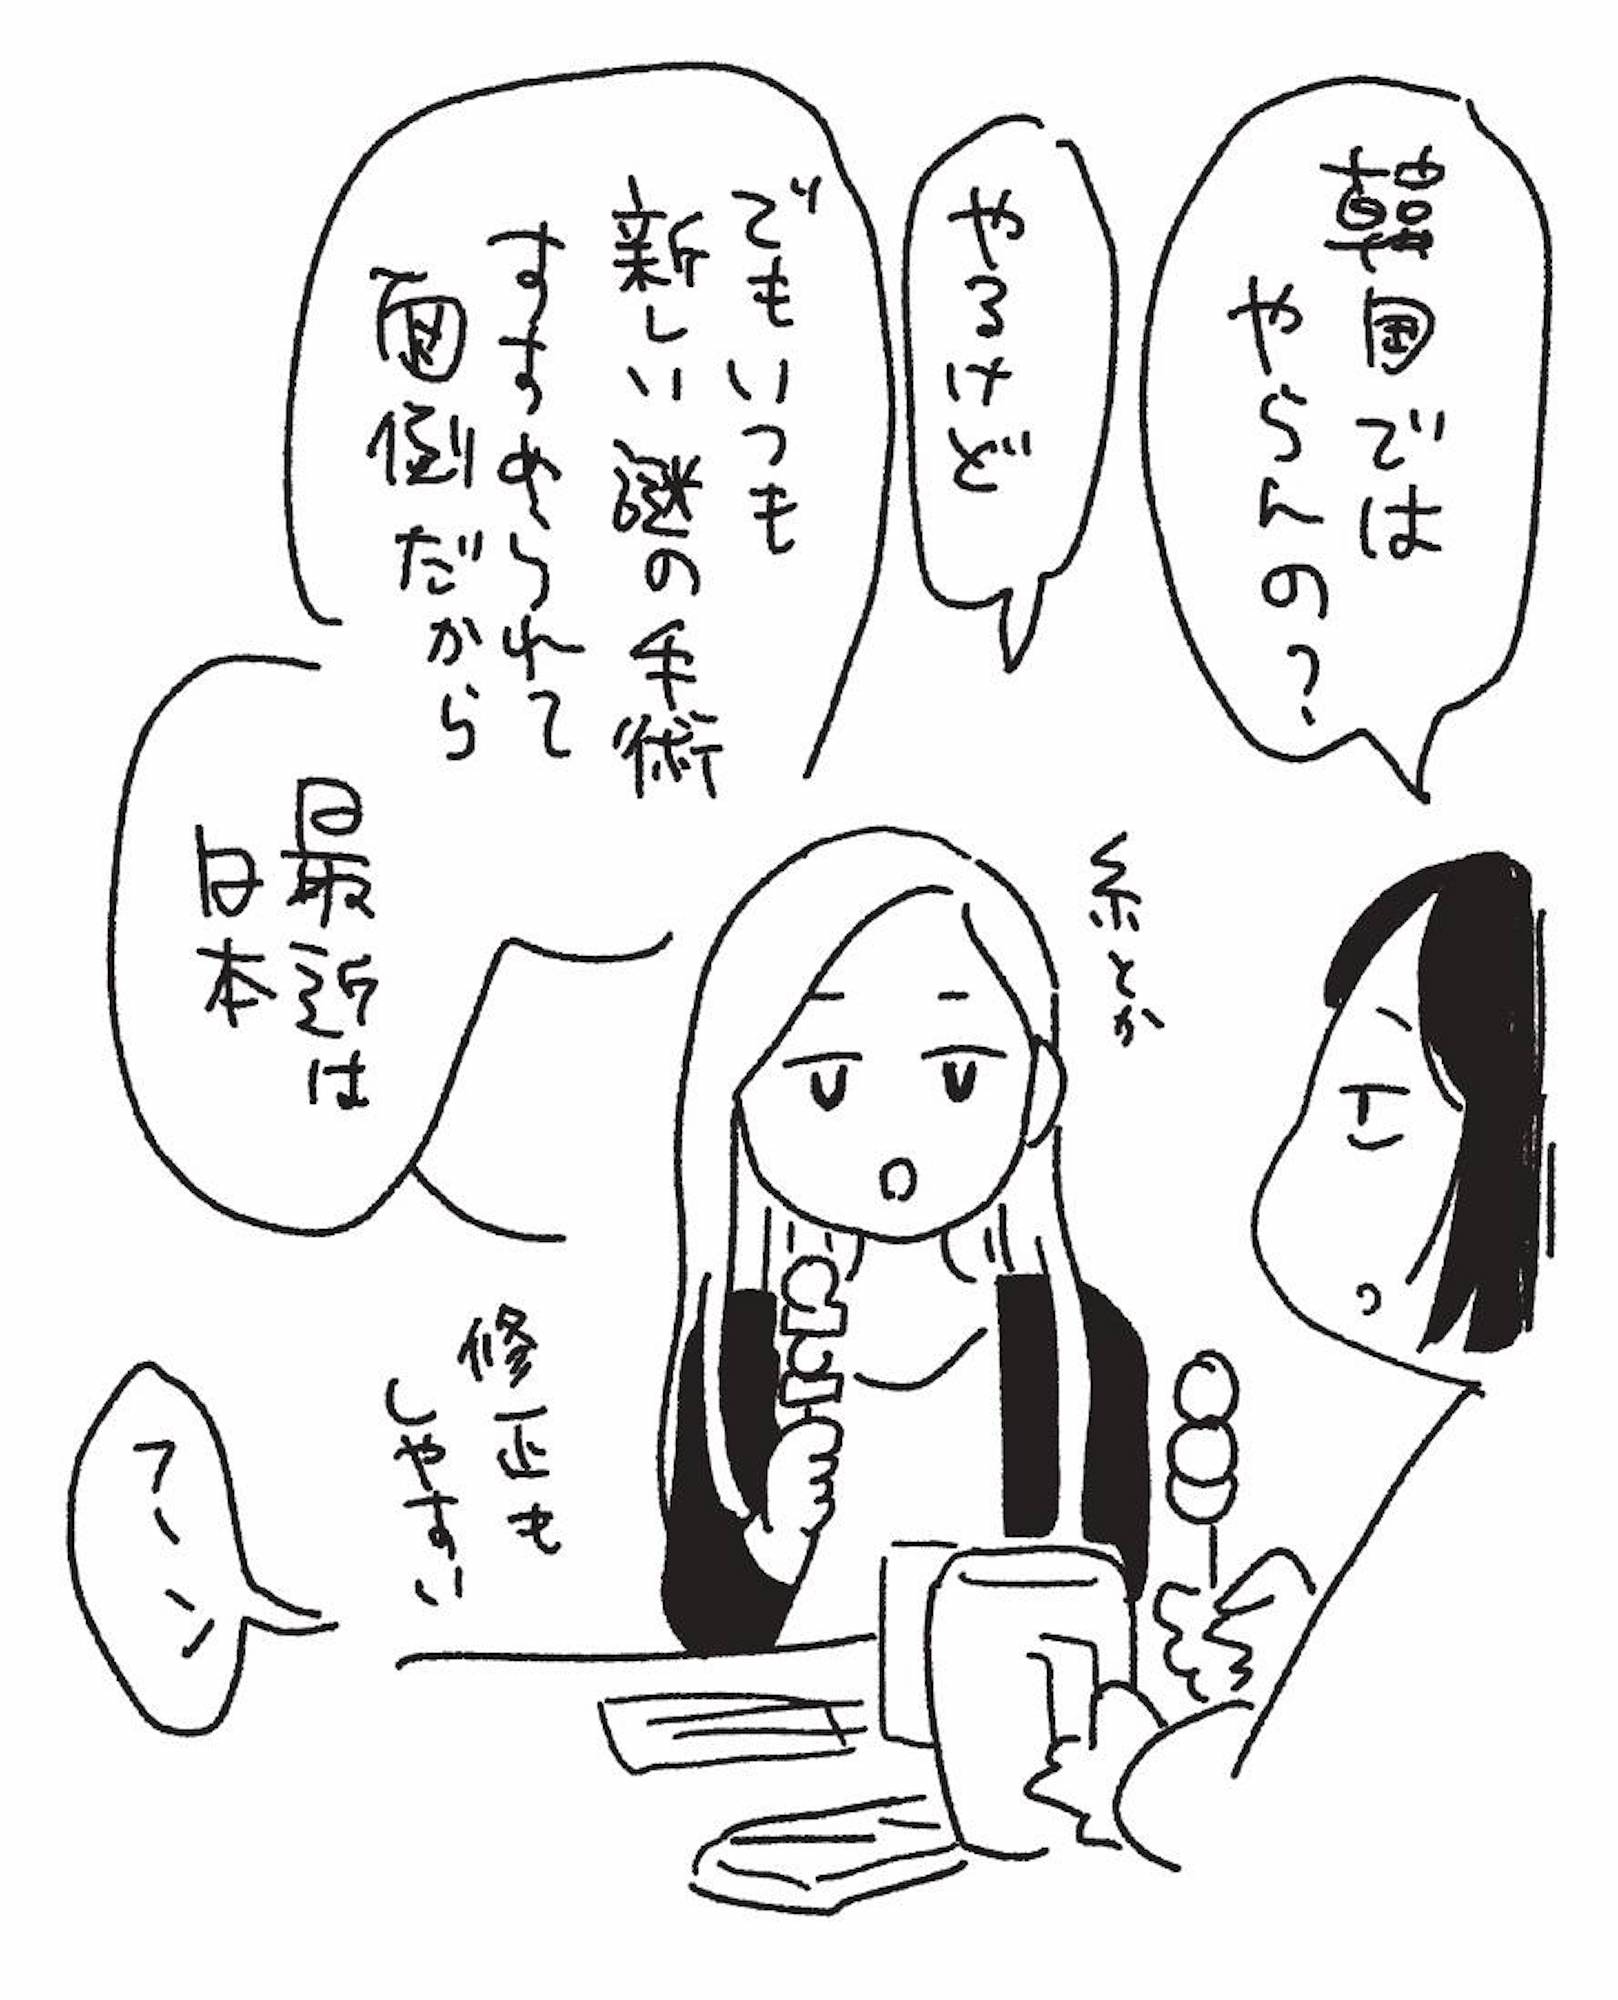 韓国では
やらんの?
やるけど
でもいつも
新しい謎の手術
すすめられて
面倒だから
糸とか
最近は
日本
修正も
しやすい
フーン